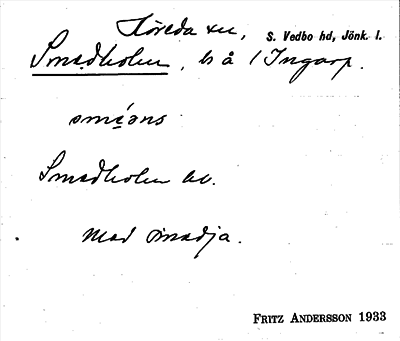 Höreda sn, S. Vedbo hd, Jönk. l.
Smedholen, ls å /Ingarp.
Smedholen
Med smedja.
FRITZ ANDERSSON 1933